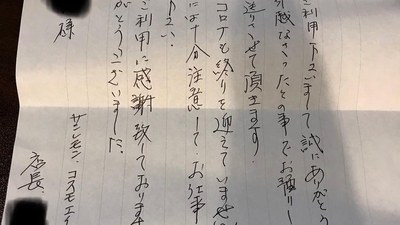 ご利用下さいまして誠にありがとう
引越なさったとの事でお預りし
送りさせて頂きます。
コロナも終りを迎えていませ
には十分注意して、お仕事
下さい。
ご利用に感謝致しております
がとうございました。
サンレモン、コスモエイ
店長、
様